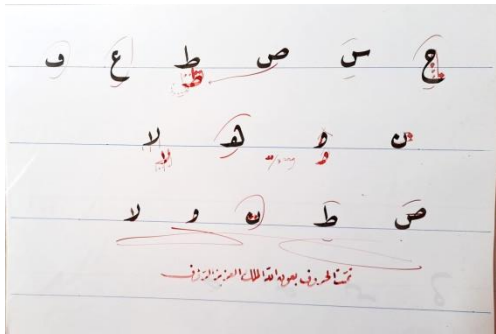 ج س ص ط ع ف
ن ه ه لا
ص ط ن و لا
تمت الحروف بعون الله الملك العزيز الرؤف